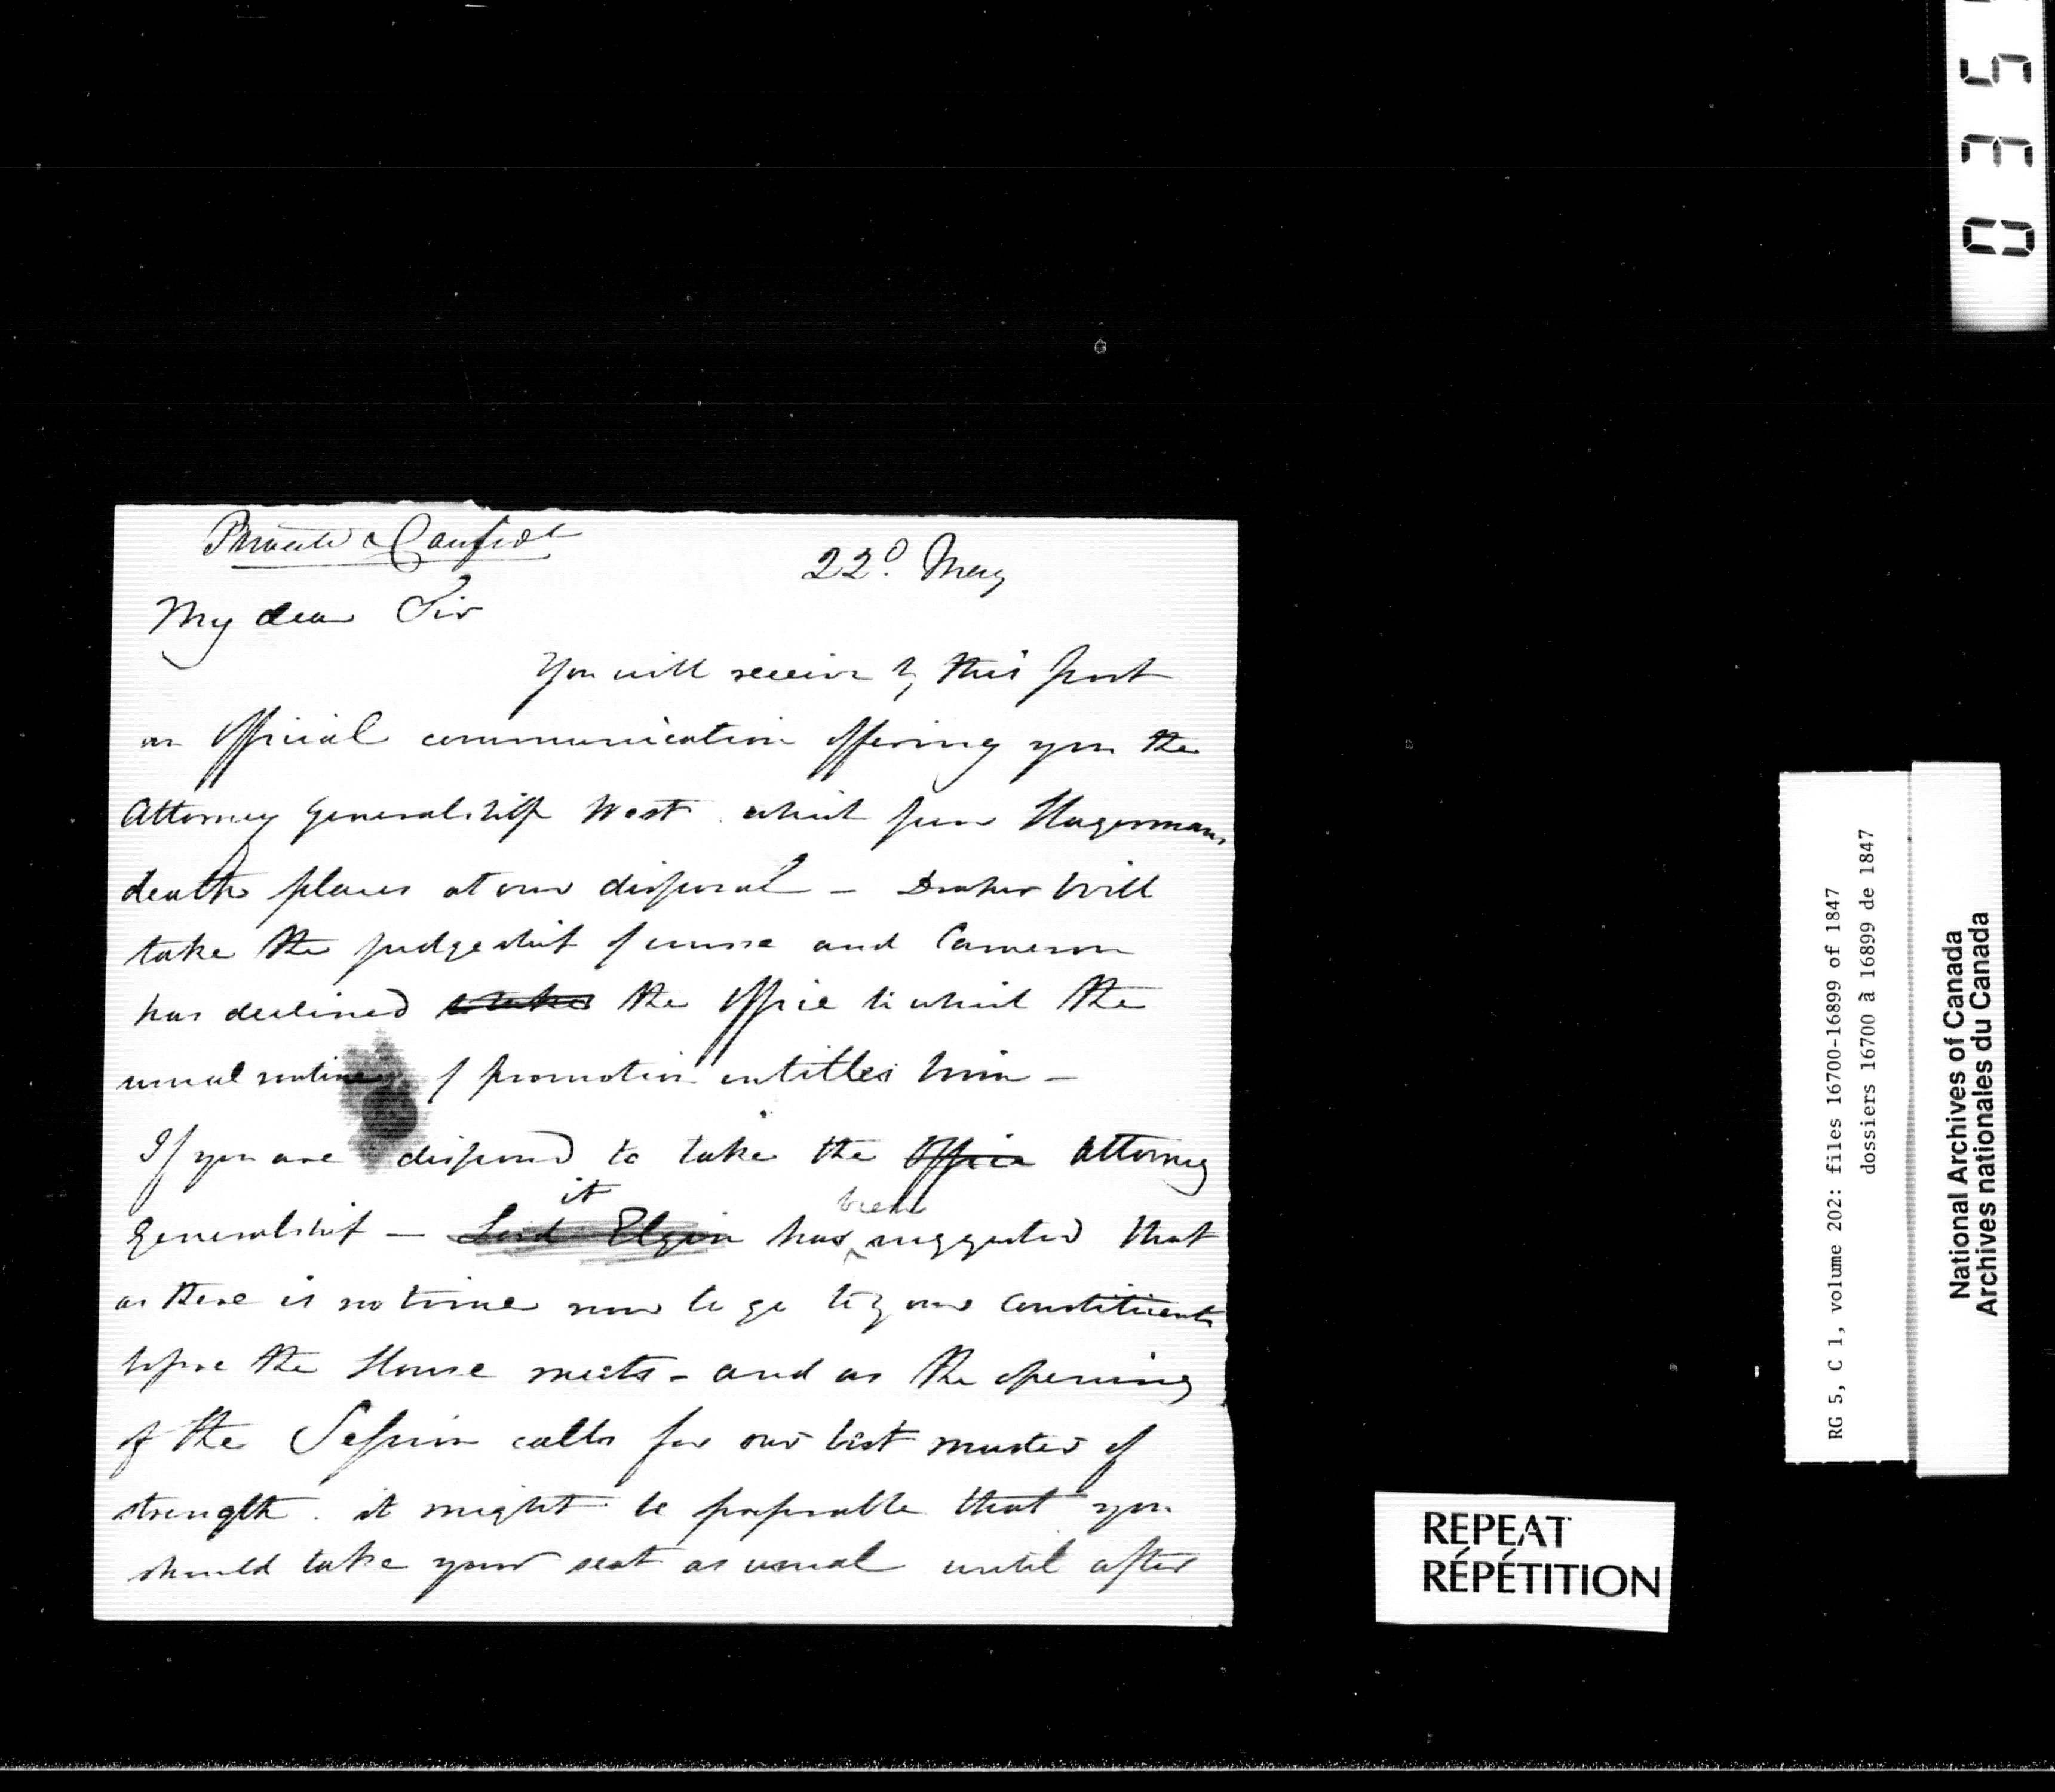 Private & Confidl
22d. May
My dear Sir
You will receive by this post
an official communication offering you the
Attorney Generalship West. which poor Hagermans
death places at our disposal – Draper will
take the judgeship of course and Cameron
has declined the office to which the
usual routine of promotion entitles him –
If you are disposed to take the Office Attorney
it been
Generalship – Lord Elgin has suggested that
as there is no time now to go to your constituents
before the House meets – and as the opening
of the Session calls for our best muster of
strength. it might be preferable that you
should take your seat as usual until after
0 3 5
RG 5, C 1, volume 202: files 16700-16899 of 1847
dossiers 16700 à 16899 de 1847
National Archives of Canada
Archives nationales du Canada
REPEAT
RÉPÉTITION